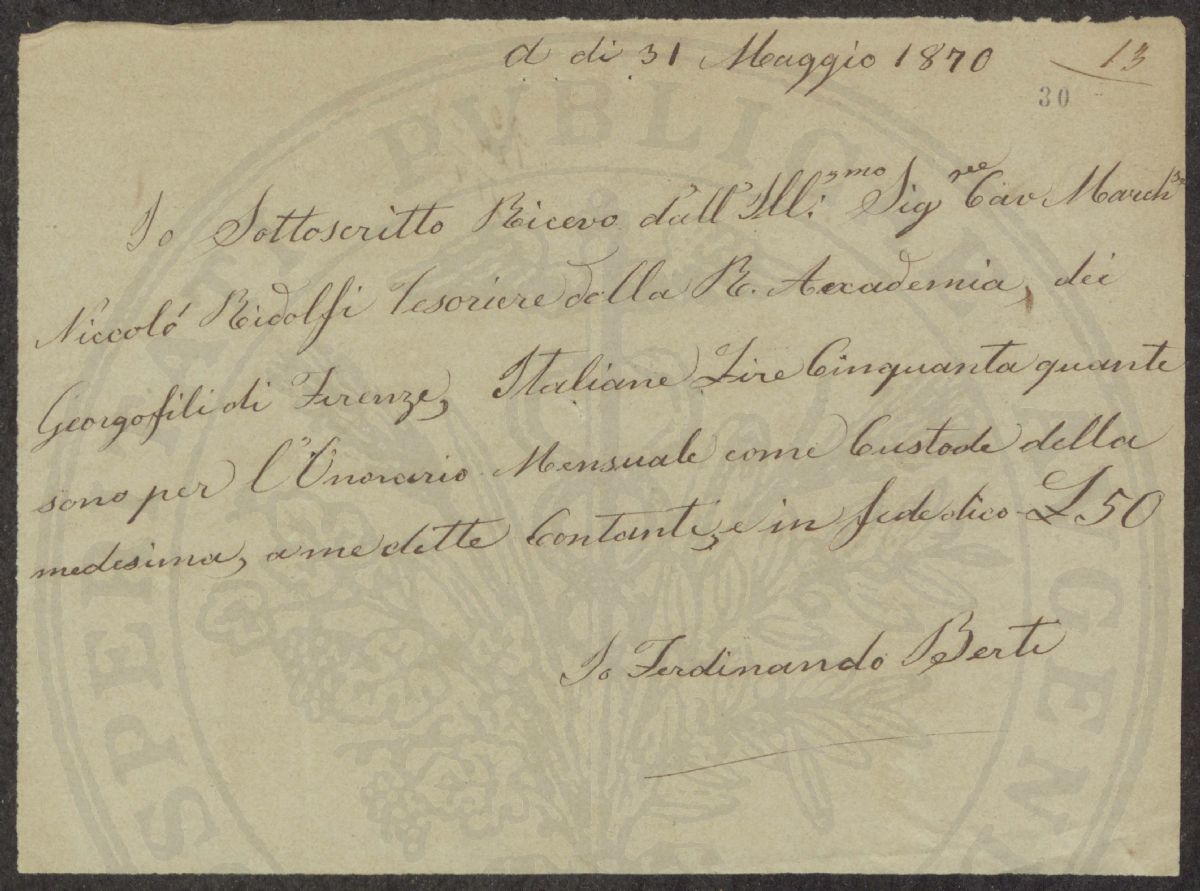 a di 31 Maggio 1870
13
30
Io Sottoscritto Ricevo dall'Ill:mo Sigree Cav March
Niccoló Ridolfi Tesoriere della R. Accademia, dei
Georgofili di Firenze, Italiane Lire Cinquanta quante
sono per l'Onorario Mensuale come Custode della
medesima, a me dette Contanti, e in fede dico L 50
Io Ferdinando Berti
PROSPERITATI PUBLICAE AUGENDAE